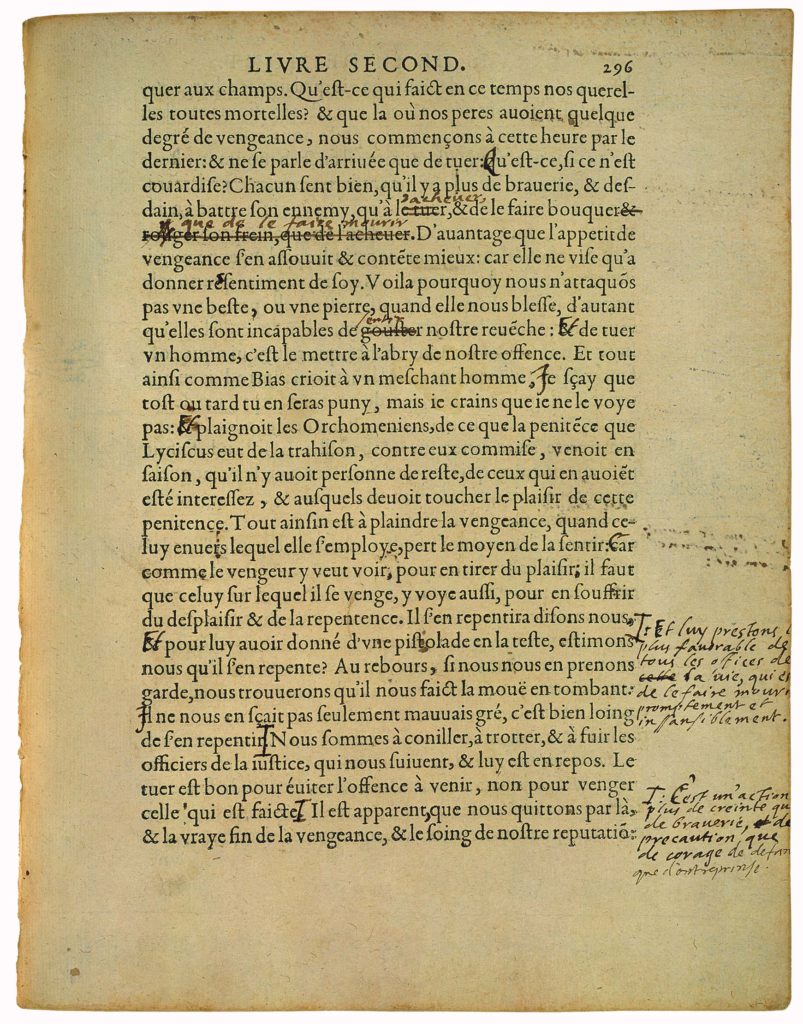 LIVRE SECOND. 296
quer aux champs. Qu'est-ce qui faict en ce temps nos querel-
les toutes mortelles? & que la où nos peres auoient quelque
degré de vengeance, nous commençons à cette heure par le
dernier: & ne se parle d'arriuée que de tuer: Qu'est-ce, si ce n'est
couardise? Chacun sent bien, qu'il y a plus de brauerie, & des-
l'acheuer
dain, à battre son ennemy, qu'à le tuer, & de le faire bouquer &
que de le faire mourir
ronger son frein, que de l'acheuer. D'auantage que l'appetit de
vengeance s'en assouuit & contēte mieux: car elle ne vise qu'a
donner resentiment de soy. Voila pourquoy nous n'attaquōs
pas vne beste, ou vne pierre, quand elle nous blesse, d'autant
sentir
qu'elles sont incapables de gouster nostre reuēche: Et de tuer
vn homme, c'est le mettre à l'abry de nostre offence. Et tout
ainsi comme Bias crioit à vn meschant homme, Je sçay que
tost ou tard tu en seras puny, mais ie crains que ie ne le voye
pas: Et plaignoit les Orchomeniens, de ce que la penitēce que
Lyciscus eut de la trahison, contre eux commise, venoit en
saison, qu'il n'y auoit personne de reste, de ceux qui en auoiēt
esté interessez, & ausquels deuoit toucher le plaisir de cette
penitence. Tout ainsin est à plaindre la vengeance, quand ce-
luy enuers lequel elle s'employe, pert le moyen de la sentir: Car
comme le vengeur y veut voir, pour en tirer du plaisir; il faut
que celuy sur lequel il se venge, y voye aussi, pour en souffrir
du desplaisir & de la repentence. Il s'en repentira disons nous,
Et pour luy auoir donné d'vne pistolade en la teste, estimons
nous qu'il s'en repente? Au rebours, si nous nous en prenons
garde, nous trouuerons qu'il nous faict la mouë en tombant:
Il ne nous en sçait pas seulement mauuais gré, c'est bien loing
de s'en repentir. Nous sommes à coniller, à trotter, & à fuir les
officiers de la iustice, qui nous suiuent, & luy est en repos. Le
tuer est bon pour éuiter l'offence à venir, non pour venger
celle qui est faicte. Il est apparent, que nous quittons par là,
& la vraye fin de la vengeance, & le soing de nostre reputatiō:
Et luy prestons l
plus fauorable de
tous les offices de
cette la vie, qui e
de le faire mouri
promptement et
insansiblement.
C'est un'action
plus de creinte qu
de brauerie, de
precaution que
de corage de defan
que d'entreprinse.